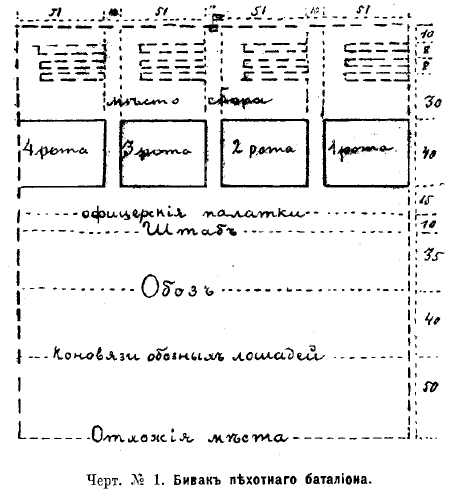 51 10 51 10 51 10 51
10
8
8
мѣсто сбора
30
4 рота 3 рота 2 рота 1 рота
40
15
офицерскія палатки
Штабъ
10
35
Обозъ
40
Коновязи обозныхъ лошадей
50
Отхожія мѣста
Черт. № 1. Бивакъ пѣхотнаго баталіона.